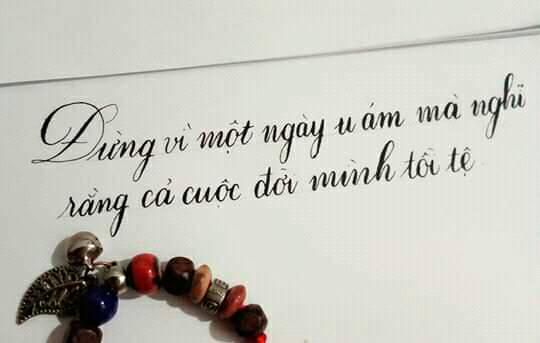 Đừng vì một ngày u ám mà nghĩ
rằng cả cuộc đời mình tồi tệ